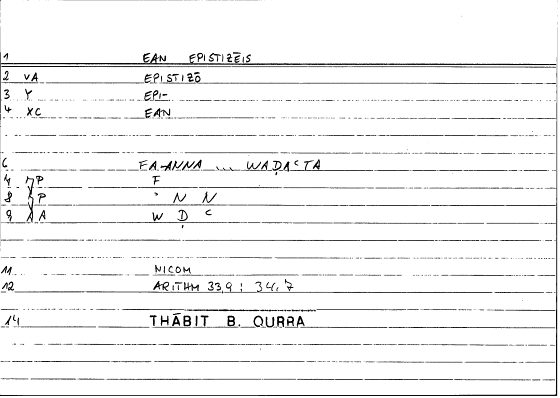 1 EAN EPISTIZĒIS
2 VA EPISTIZŌ
3 Y EPI-
4 XC EAN
6 FA-ANNA ... WAḌAʿTA
7 P F
8 P ʾ N N
9 A W Ḍ ʿ
11 NICOM
12 ARITHM 33,9 ; 34,7
14 THĀBIT B. QURRA